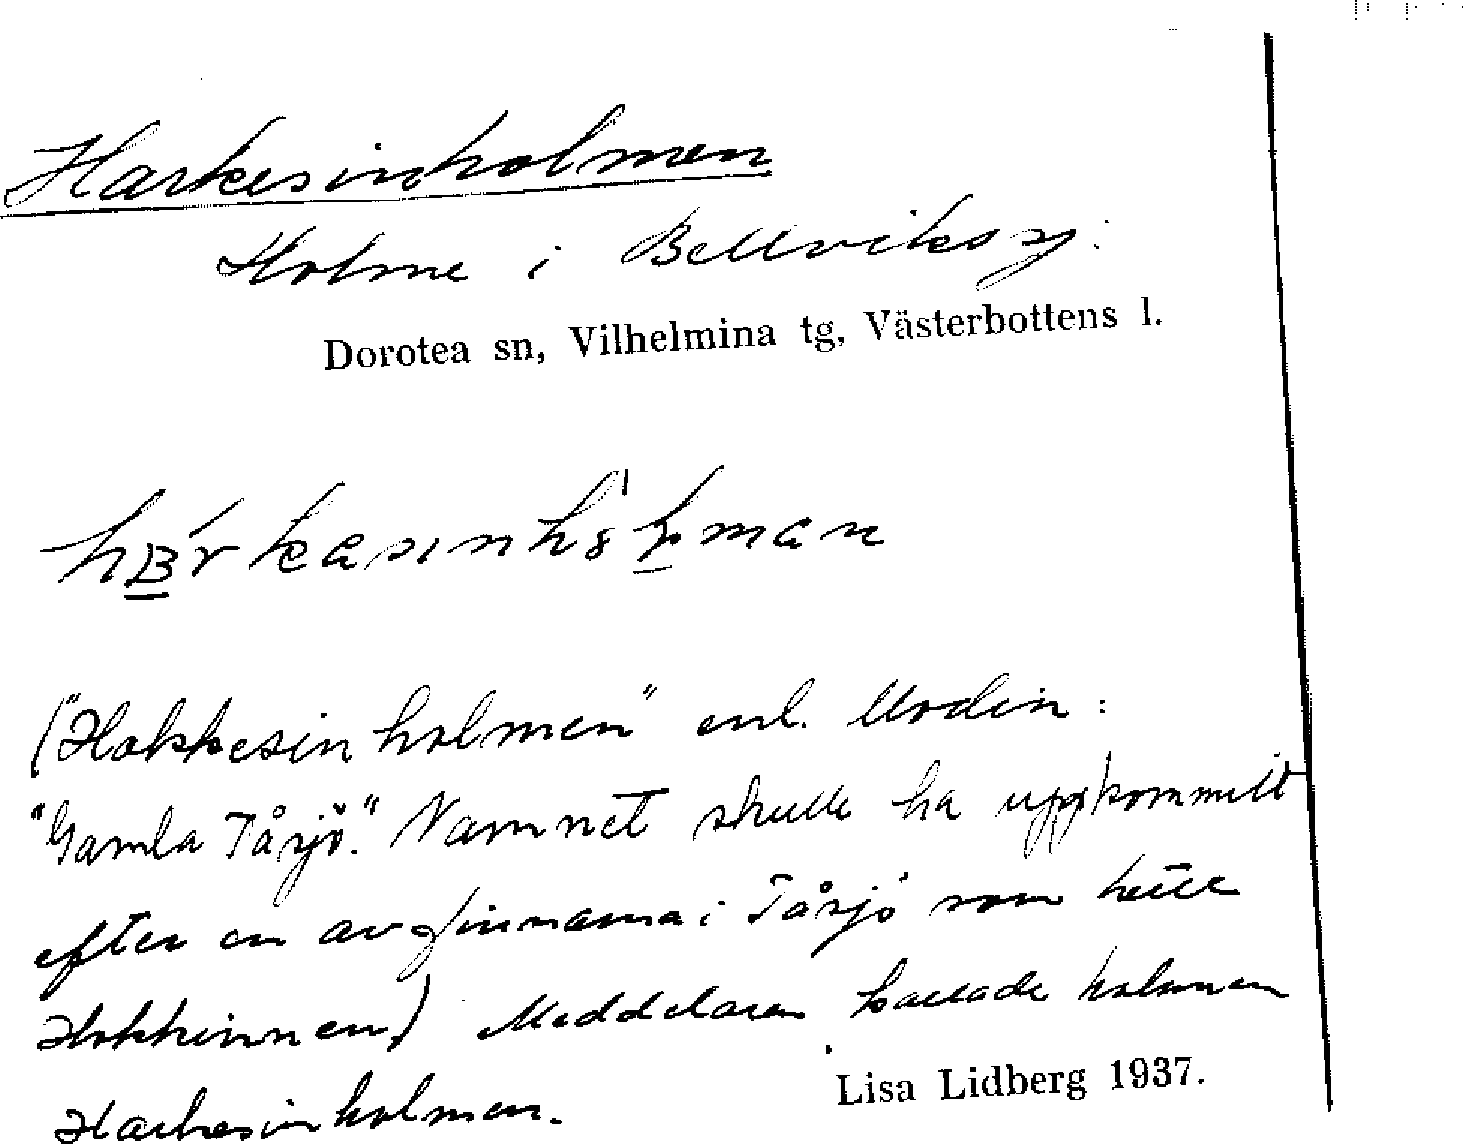 Harkesinholmen
Holme i Bellviksj.
Dorotea sn, Vilhelmina tg, Västerbottens l.
("Hokkesinholmen" enl. Modin:
"Gamla Tåsjö." Namnet skulle ha uppkommit
efter en av finnarna i Tåsjö som hette
Hokkinnen) Meddelaren kallade holmen
Harkesinholmen.
Lisa Lidberg 1937.